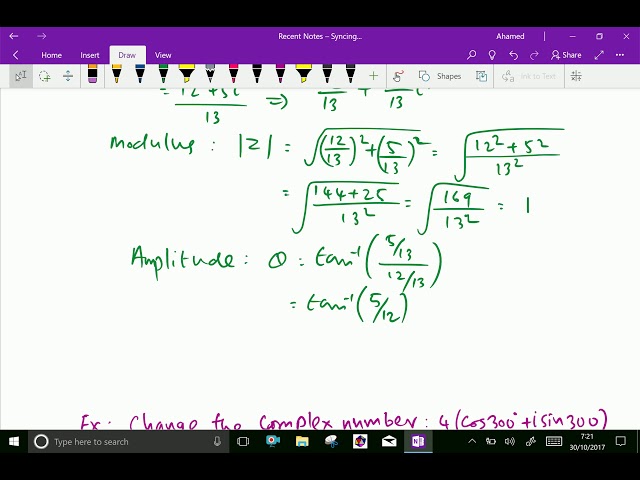 Recent Notes – Syncing...
Ahamed
Home Insert Draw View
Share
Shapes
Ink to Text
= 12+5i/13 ⇒ 12/13 + 5/13 i
Modulus : |Z| = √((12/13)² + (5/13)²) = √((12² + 5²)/13²)
= √((144+25)/13²) = √(169/13²) = 1
Amplitude : θ = tan⁻¹((5/13)/(12/13))
= tan⁻¹(5/12)
Ex: Change the complex number: 4(cos300°+isin300)
Type here to search
7:21
30/10/2017